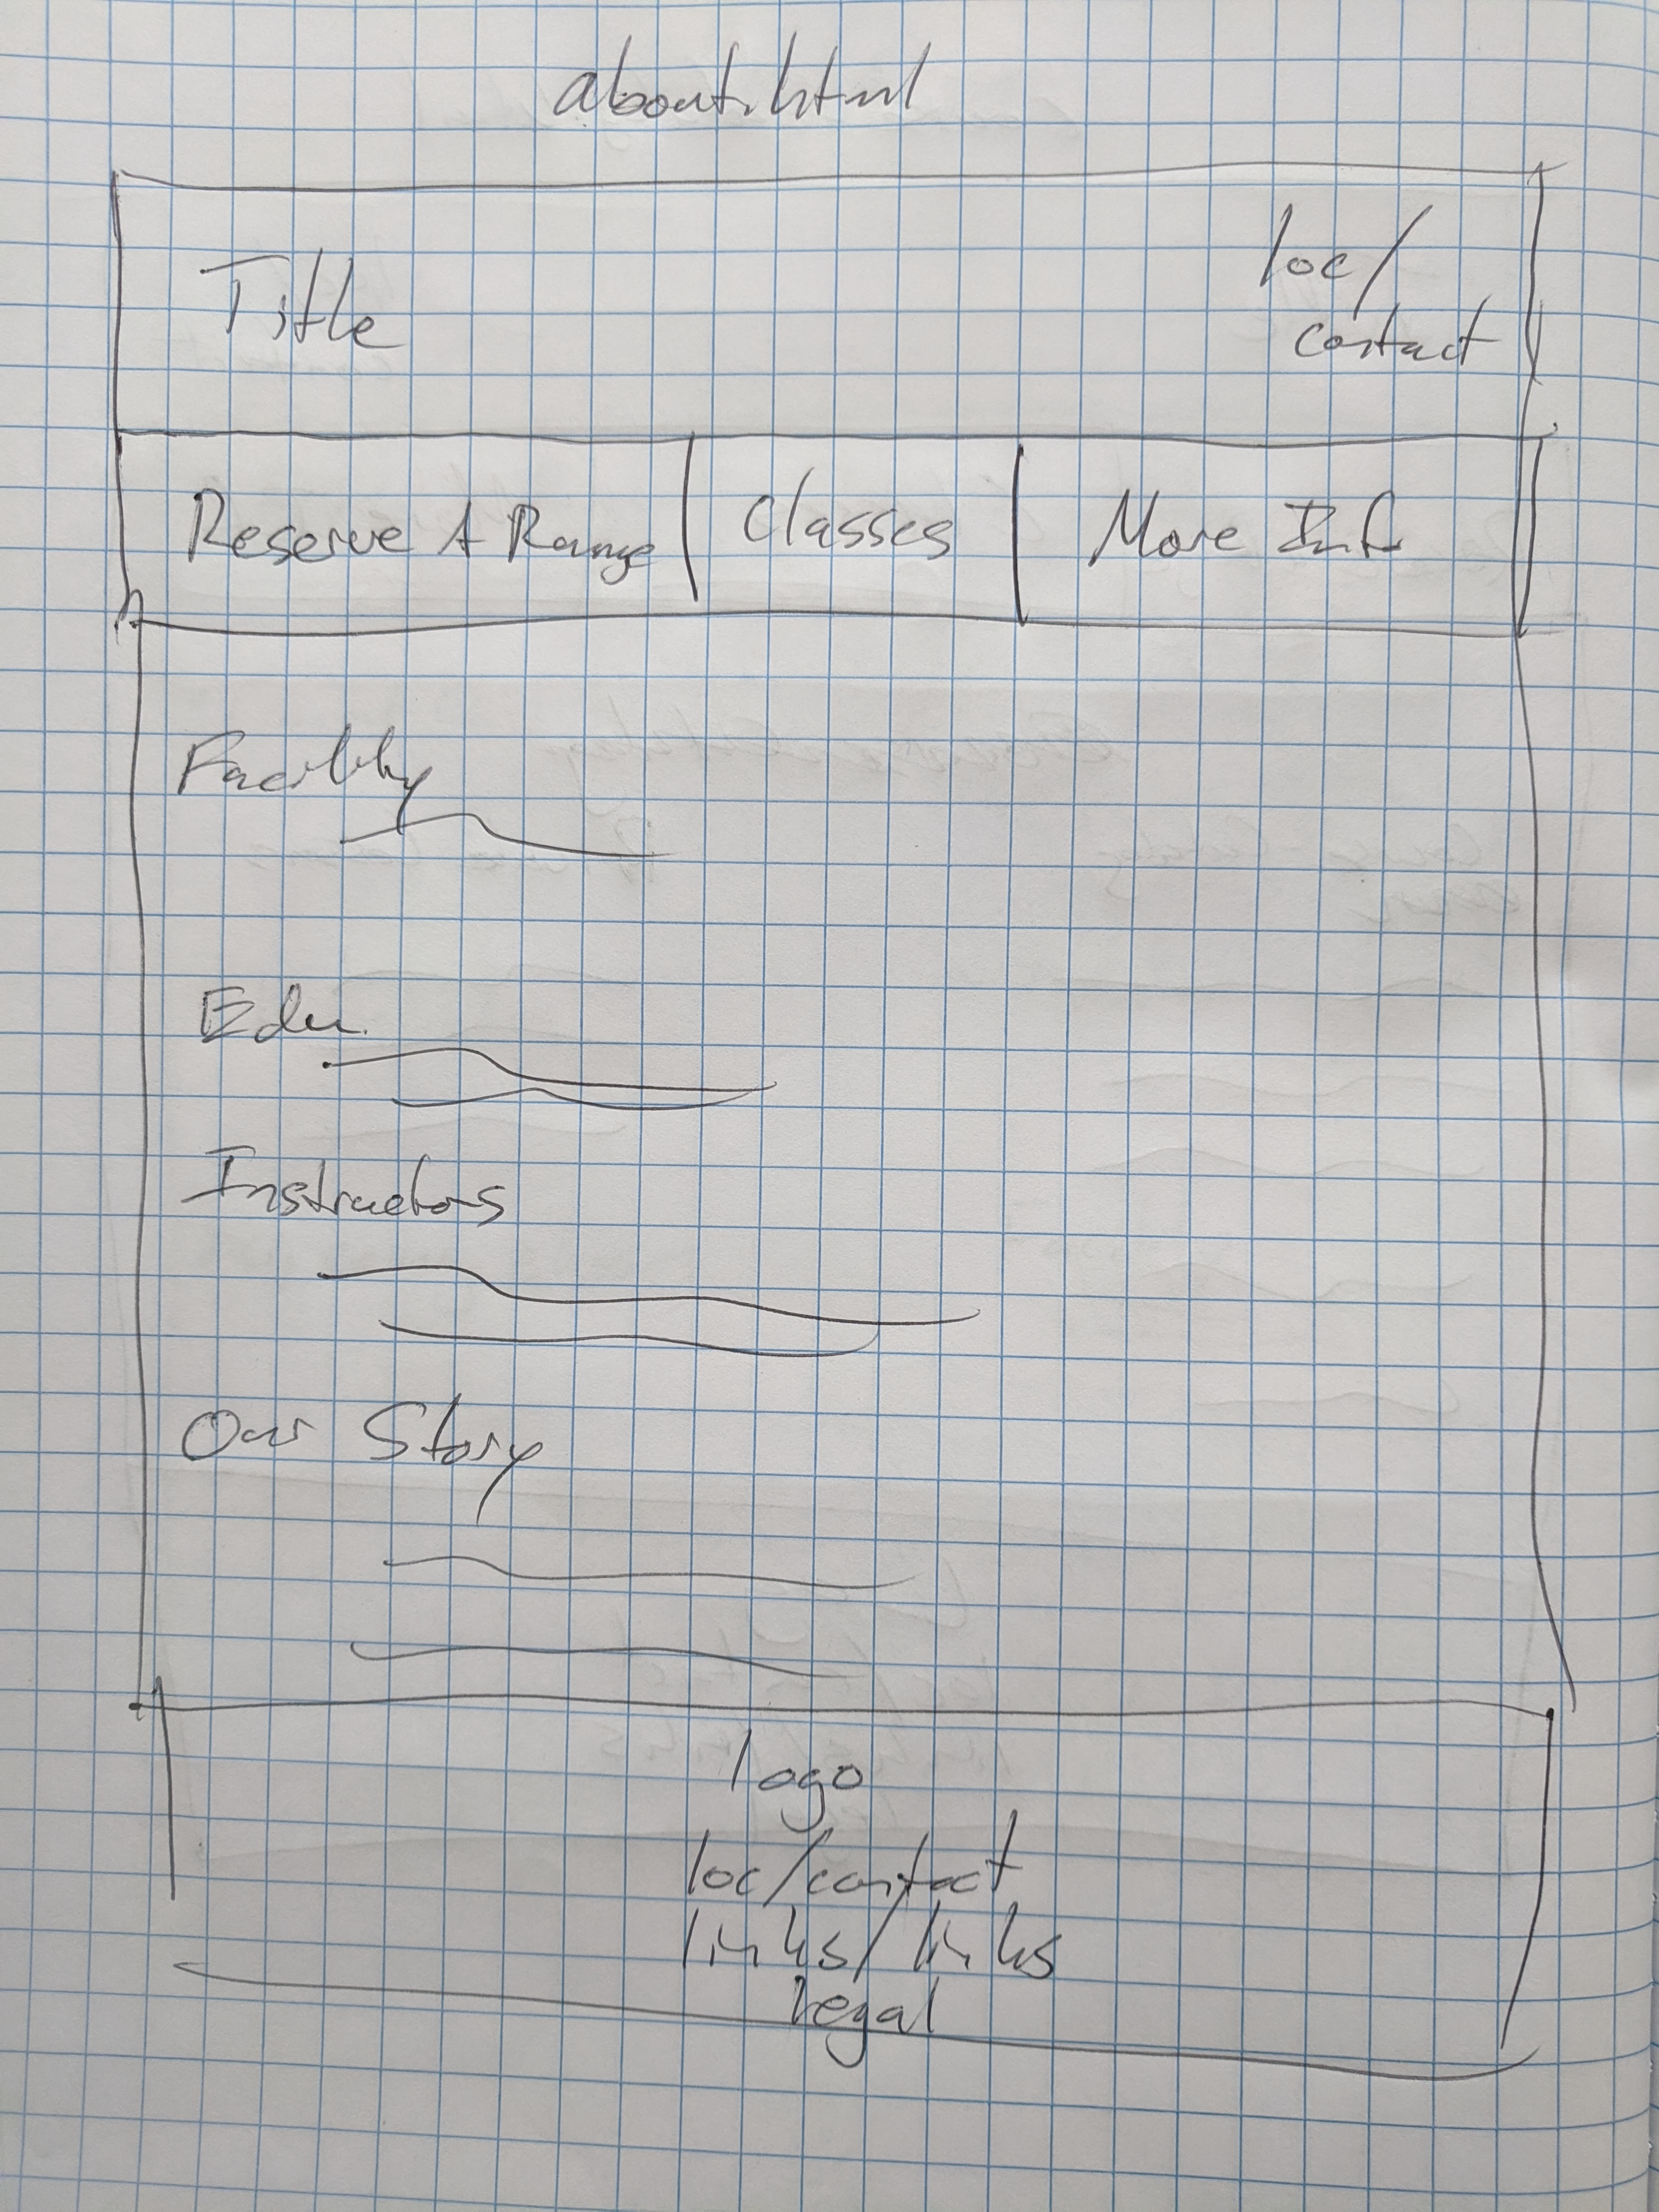 about.html
Title
loc/
contact
Reserve A Range
Classes
More Inf
Facility
Edu.
Instructors
Our Story
logo
loc/contact
links/links
legal